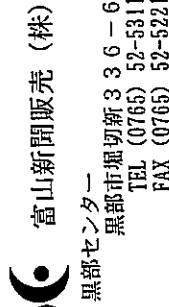 富山新聞販売(株)
黒部センター
黒部市堀切新336-6
TEL (0765) 52-5311
FAX (0765) 52-5221